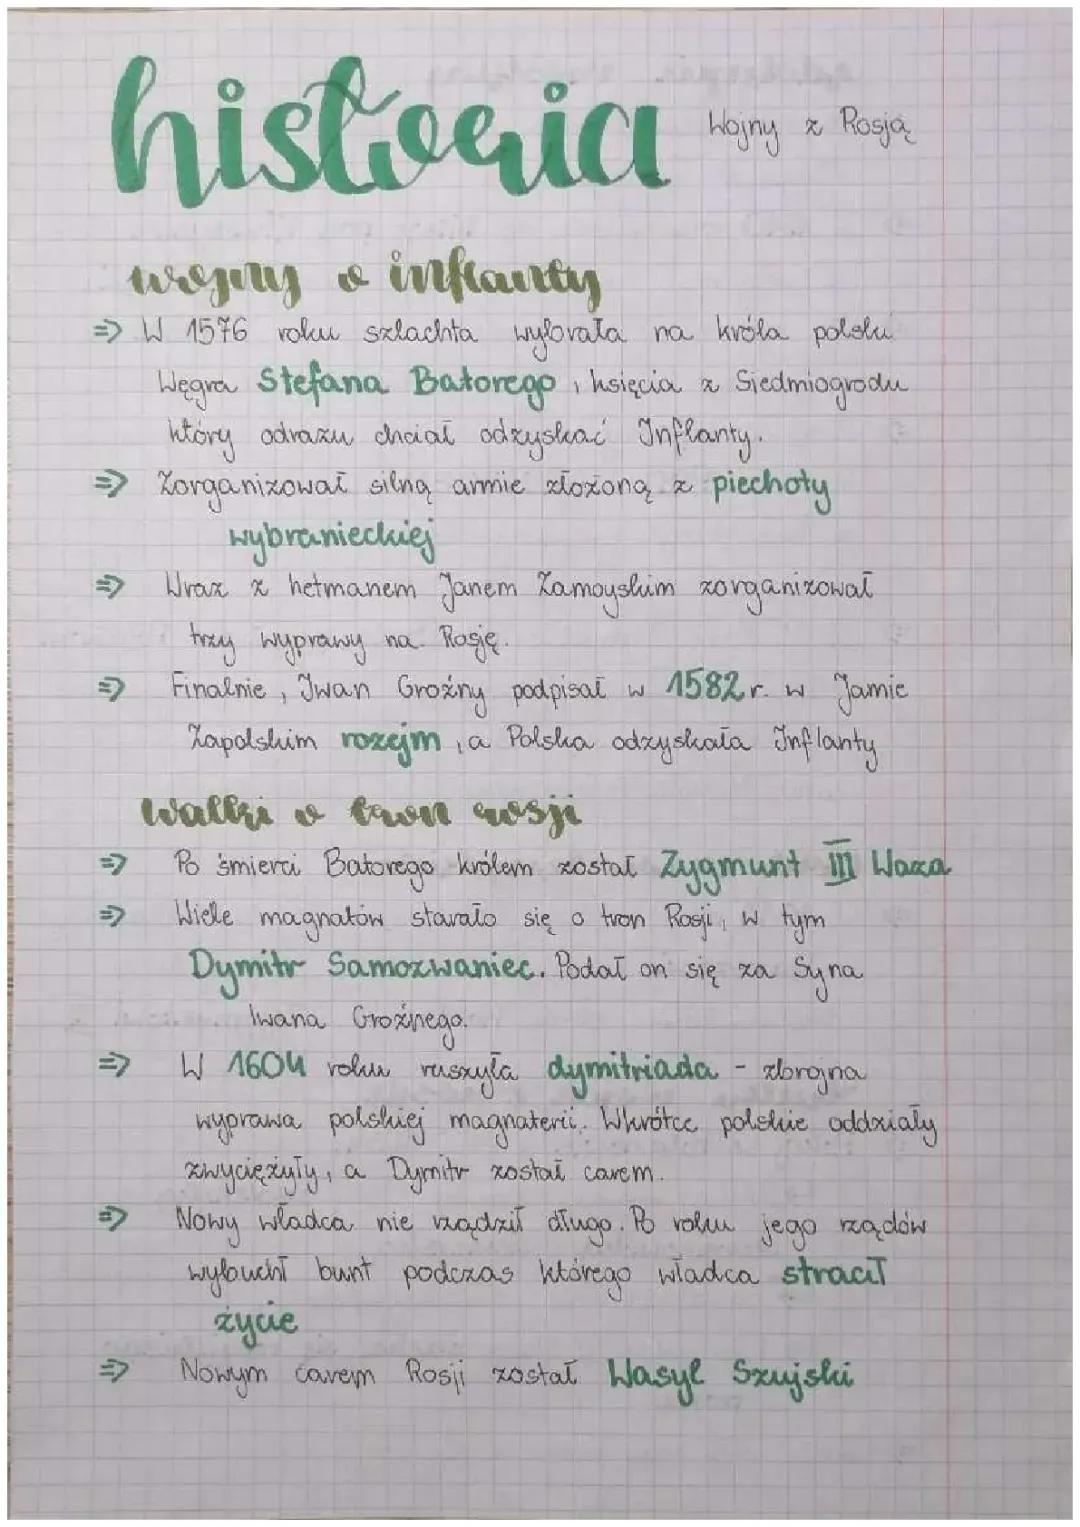 historia Wojny z Rosją
wojny o inflanty
=> W 1576 roku szlachta wybrała na króla polski
Węgra Stefana Batorego, księcia z Siedmiogrodu
który odrazu chciał odzyskać Inflanty.
=> Zorganizował silną armie złożoną z piechoty
wybranieckiej
=> Wraz z hetmanem Janem Zamoyskim zorganizował
trzy wyprawy na Rosję.
=> Finalnie, Iwan Groźny podpisał w 1582r. w Jamie
Zapolskim rozejm, a Polska odzyskała Inflanty
walki o tron rosji
=> Po śmierci Batorego królem został Zygmunt III Waza
=> Wiele magnatów starało się o tron Rosji, w tym
Dymitr Samozwaniec. Podał on się za Syna
Iwana Groźnego.
=> W 1604 roku ruszyła dymitriada - zbrojna
wyprawa polskiej magnaterii. Wkrótce polskie oddziały
zwyciężyły, a Dymitr został carem.
=> Nowy władca nie rządził długo. Po roku jego rządów
wybuchł bunt podczas którego władca stracił
życie
=> Nowym carem Rosji został Wasyl Szujski